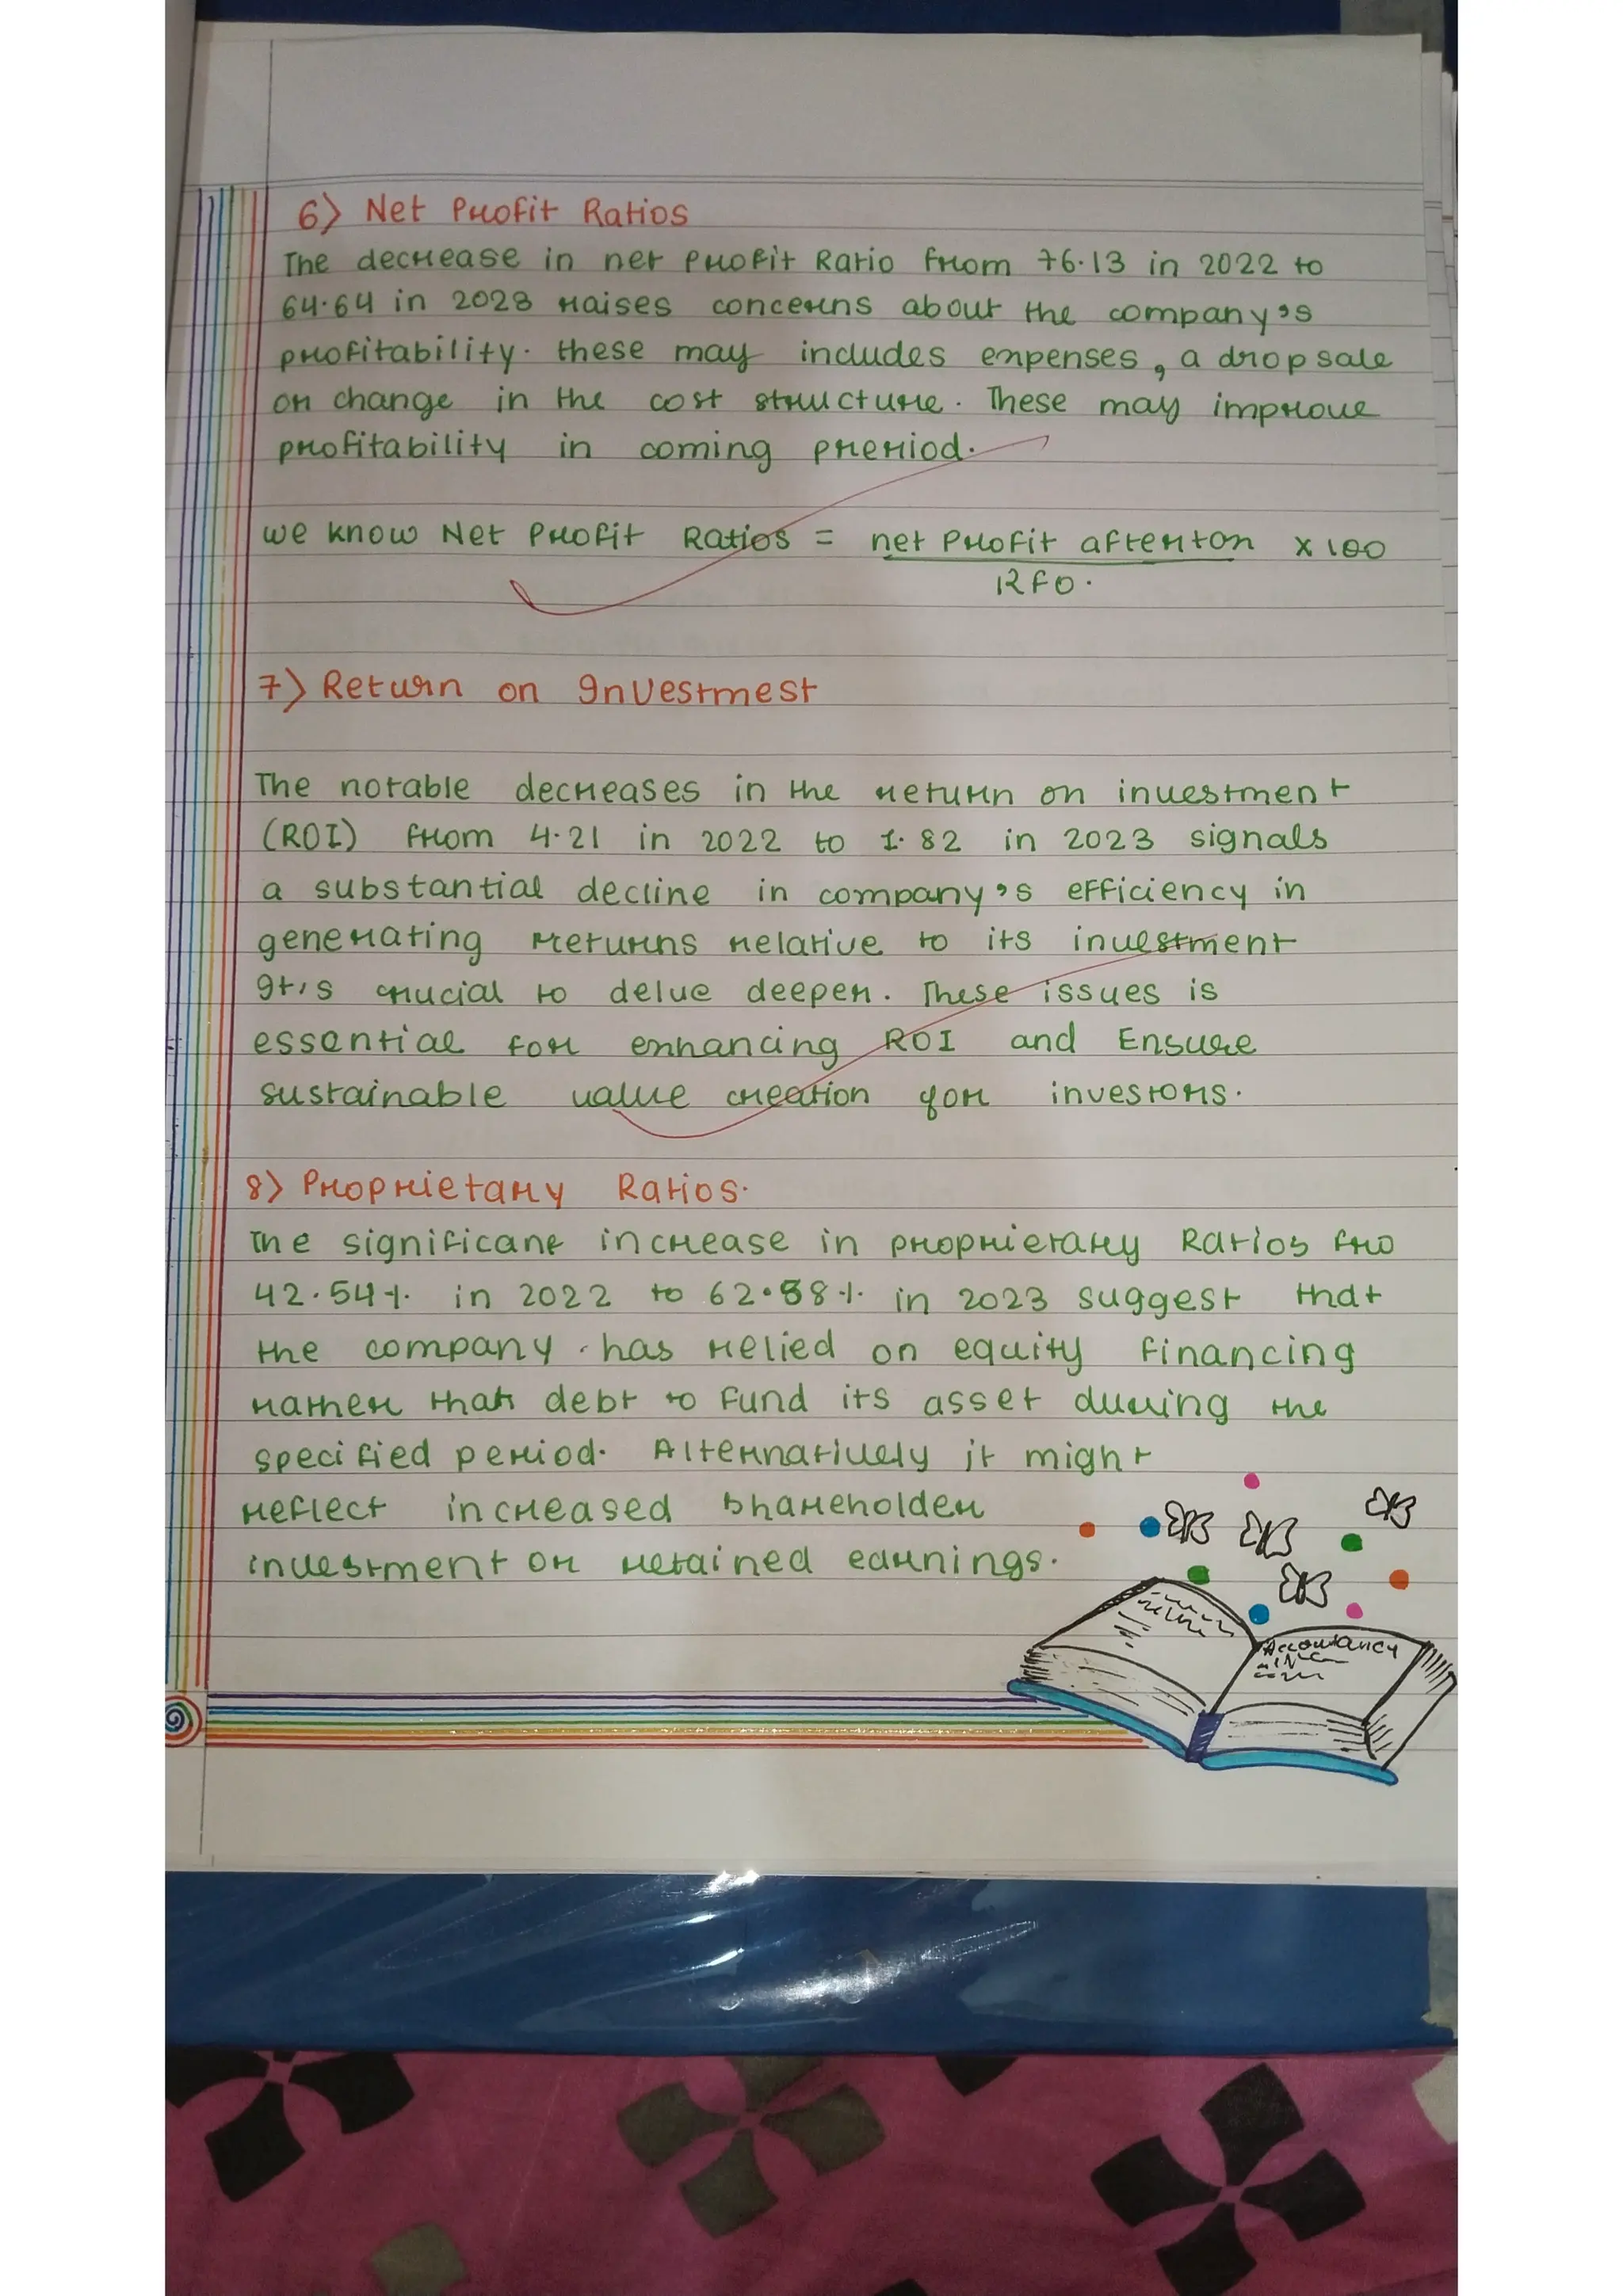 6) Net Profit Ratios
The decrease in net Profit Ratio from 76.13 in 2022 to
64.64 in 2023 raises concerns about the company's
profitability. these may includes expenses, a drop sale
or change in the cost structure. These may improve
profitability in coming preriod.
we know Net Profit Ratios = net Profit after tax x 100
RFO.
7) Return on Investmest
The notable decreases in the return on investment
(ROI) from 4.21 in 2022 to 1.82 in 2023 signals
a substantial decline in company's efficiency in
generating returns relative to its investment
It is crucial to delve deeper. These issues is
essential for enhancing ROI and Ensure
sustainable value creation for investors.
8) Proprietary Ratios.
The significant increase in proprietary Ratios fro
42.54% in 2022 to 62.58% in 2023 suggest that
the company has relied on equity financing
rather than debt to fund its asset during the
specified period. Alternatively it might
reflect increased shareholder
investment or retained earnings.
Accountancy